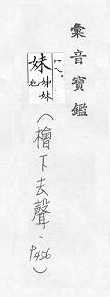 彙音寶鑑
妹
姊妹
也
(檜下去聲·
P456)